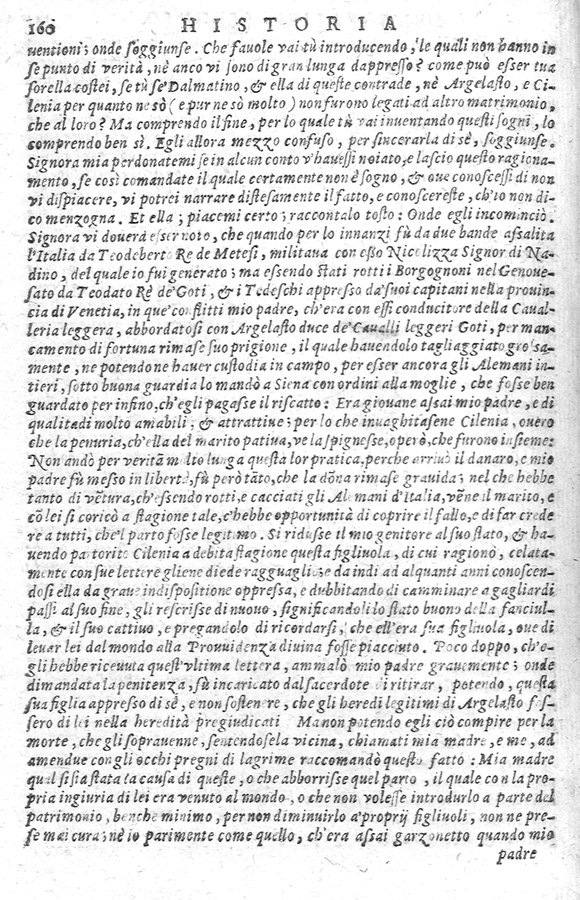 160 HISTORIA
uentioni; onde soggiunse. Che fauole vai tù introducendo, le quali non hanno in
se punto di verità, nè anco vi sono di gran lunga dappresso? come può esser tua
sorella costei, se tù se' Dalmatino, & ella di queste contrade, nè Argelasto, e Ci-
lenia per quanto ne sò (e pur ne sò molto) non furono legati ad altro matrimonio,
che al loro? Ma comprendo il fine, per lo quale tù vai inuentando questi sogni, lo
comprendo ben sì. Egli allora mezzo confuso, per sincerarla di sè, soggiunse.
Signora mia perdonatemi se in alcun conto v'hauessi noiato, e lascio questo ragiona-
mento, se così comandate il quale certamente non è sogno, & oue conoscessi di non
vi dispiacere, vi potrei narrare distesamente il fatto, e conoscereste, ch'io non di-
co menzogna. Et ella; piacemi certo; raccontalo tosto: Onde egli incominciò.
Signora vi douerà esser noto, che quando per lo innanzi fù da due bande assalita
l'Italia da Teodeberto Re de Metesi, militaua con esso Nicolizza Signor di Na-
dino, del quale io fui generato; ma essendo stati rotti i Borgognoni nel Genoue-
sato da Teodato Rè de' Goti, & i Tedeschi appresso da' suoi capitani nella prouin-
cia di Venetia, in que' conflitti mio padre, ch'era con essi conducitore della Caual-
leria leggera, abbordatosi con Argelasto duce de' Caualli leggeri Goti, per man-
camento di fortuna rimase suo prigione, il quale hauendolo tagliaggiato grossa-
mente, ne potendone hauer custodia in campo, per esser ancora gli Alemani in-
tieri, sotto buona guardia lo mandò a Siena con ordini alla moglie, che fosse ben
guardato per infino, ch'egli pagasse il riscatto: Era giouane assai mio padre, e di
qualità di molto amabili, & attrattiue; per lo che inuaghitasene Cilenia, ouero
che la penuria, ch'ella del marito patiua, ve la spignesse, operò, che furono insieme:
Non andò per verità molto lunga questa lor pratica, perche arriuò il danaro, e mio
padre fù messo in libertà, fù però tāto, che la dōna rimase grauida; nel che hebbe
tanto di vētura, ch'essendo rotti, e cacciati gli Alemani d'Italia, vēne il marito, e
cō lei si coricò a stagione tale, c'hebbe opportunità di coprire il fallo, e di far crede
re a tutti, che'l parto fosse legitimo. Si ridusse il mio genitore al suo stato, & ha-
uendo partorito Cilenia a debita stagione questa figliuola, di cui ragionò, celata-
mente con sue lettere gliene diede ragguaglio; e da indi ad alquanti anni conoscen-
dosi ella da graue indispositione oppressa, e dubbitando di camminare a gagliardi
passi al suo fine, gli rescrisse di nuouo, significandoli lo stato buono della fanciul-
la, & il suo cattiuo, e pregandolo di ricordarsi, che ell'era sua figliuola, oue di
leuar lei dal mondo alla Prouuidenza diuina fosse piacciuto. Poco doppo, ch'e-
gli hebbe riceuuta quest'vltima lettera, ammalò mio padre grauemente; onde
dimandata la penitenza, fù incaricato dal sacerdote di ritirar, potendo, questa
sua figlia appresso di sè, e non sostenere, che gli heredi legitimi di Argelasto fos-
sero di lei nella heredità pregiudicati Ma non potendo egli ciò compire per la
morte, che gli sopravenne, sentendosela vicina, chiamati mia madre, e me, ad
amendue con gli occhi pregni di lagrime raccomandò questo fatto: Mia madre
qual si sia stata la causa di queste, o che abborrisse quel parto, il quale con la pro-
pria ingiuria di lei era venuto al mondo, o che non volesse introdurlo a parte del
patrimonio, benche minimo, per non diminuirlo a' proprij figliuoli, non ne pre-
se mai cura; nè io parimente come quello, ch'era assai garzonetto quando mio
padre